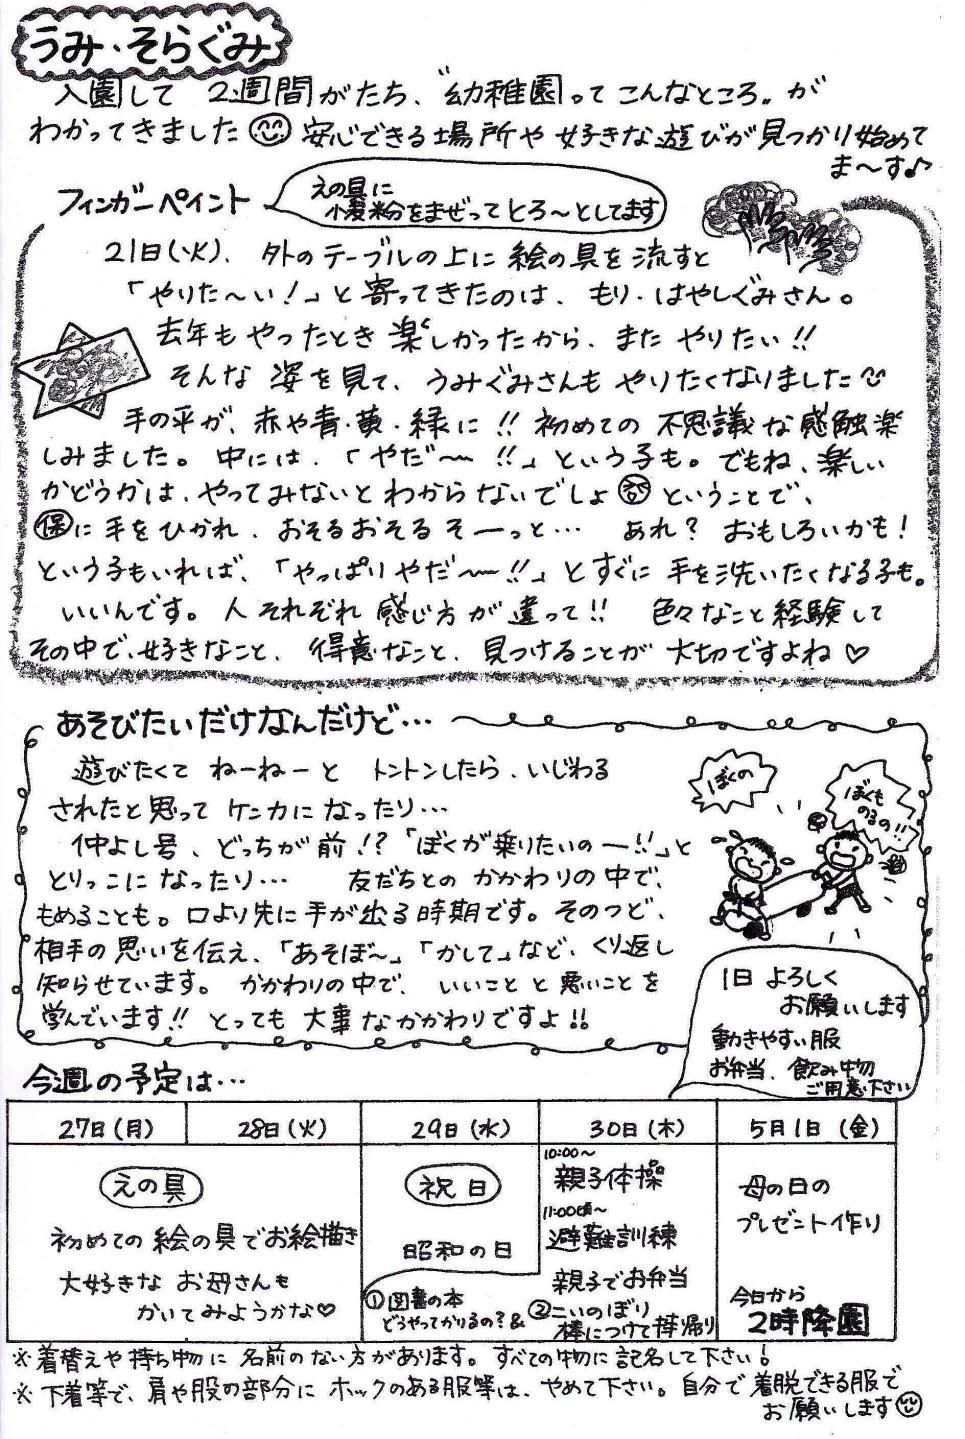 うみ・そらぐみ
入園して 2週間がたち、〝幼稚園ってこんなところ〟が
わかってきました 安心できる場所や好きな遊びが見つかり始めて
ま〜す♪
フィンガーペイント
えの具に
小麦粉をまぜってとろ〜としてます
21日(火)、外のテーブルの上に絵の具を流すと
「やりた〜い！」と寄ってきたのは、もり・はやしぐみさん。
去年もやったとき楽しかったから、またやりたい!!
そんな姿を見て、うみぐみさんもやりたくなりました
手の平が、赤や青・黄・緑に!! 初めての不思議な感触楽
しみました。中には、「やだ〜!!」という子も。でもね、楽しい
かどうかは、やってみないとわからないでしょ ということで、
保に手をひかれ、おそるおそるそーっと… あれ？おもしろいかも！
という子もいれば、「やっぱりやだ〜!!」とすぐに手を洗いたくなる子も。
いいんです。人それぞれ感じ方が違って!! 色々なこと経験して
その中で、好きなこと、得意なこと、見つけることが大切ですよね♡
あそびたいだけなんだけど…
遊びたくてねーねーと トントンしたら、いじわる
されたと思ってケンカになったり…
仲よし号、どっちが前!?「ぼくが乗りたいのー!!」と
とりっこになったり… 友だちとのかかわりの中で、
もめることも。口より先に手が出る時期です。そのつど、
相手の思いを伝え、「あそぼ〜」「かして」など、くり返し
知らせています。かかわりの中で、いいことと悪いことを
学んでいます!! とっても大事なかかわりですよ!!
ぼくの
ぼくも
のるの!!
1日よろしく
お願いします
動きやすい服
お弁当、飲み物
ご用意下さい
今週の予定は…
27日(月) 28日(火) 29日(水) 30日(木) 5月1日(金)
えの具
初めての絵の具でお絵描き
大好きなお母さんも
かいてみようかな♡
祝日
昭和の日
①図書の本
どうやってかりるの？&
10:00〜
親子体操
11:00頃〜
避難訓練
親子でお弁当
②こいのぼり
棒につけて持帰り
母の日の
プレゼント作り
今日から
2時降園
※着替えや持ち物に名前のない方があります。すべての物に記名して下さい！
※下着等で、肩や股の部分にホックのある服等は、やめて下さい。自分で着脱できる服で
お願いします